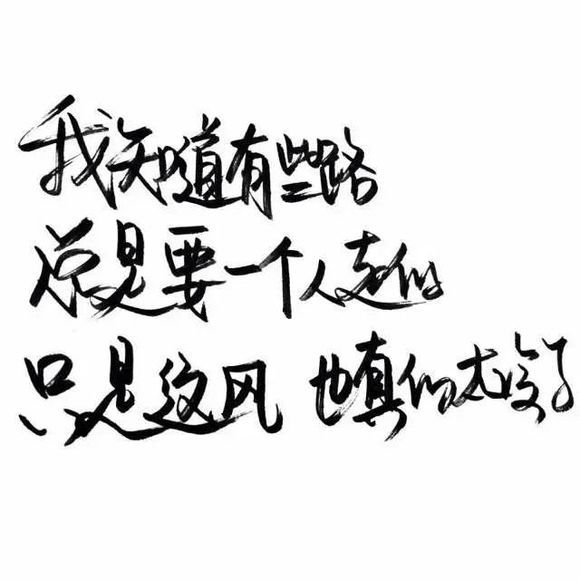 我知道有些路
总是要一个人走的
只是这风 也真的太冷了